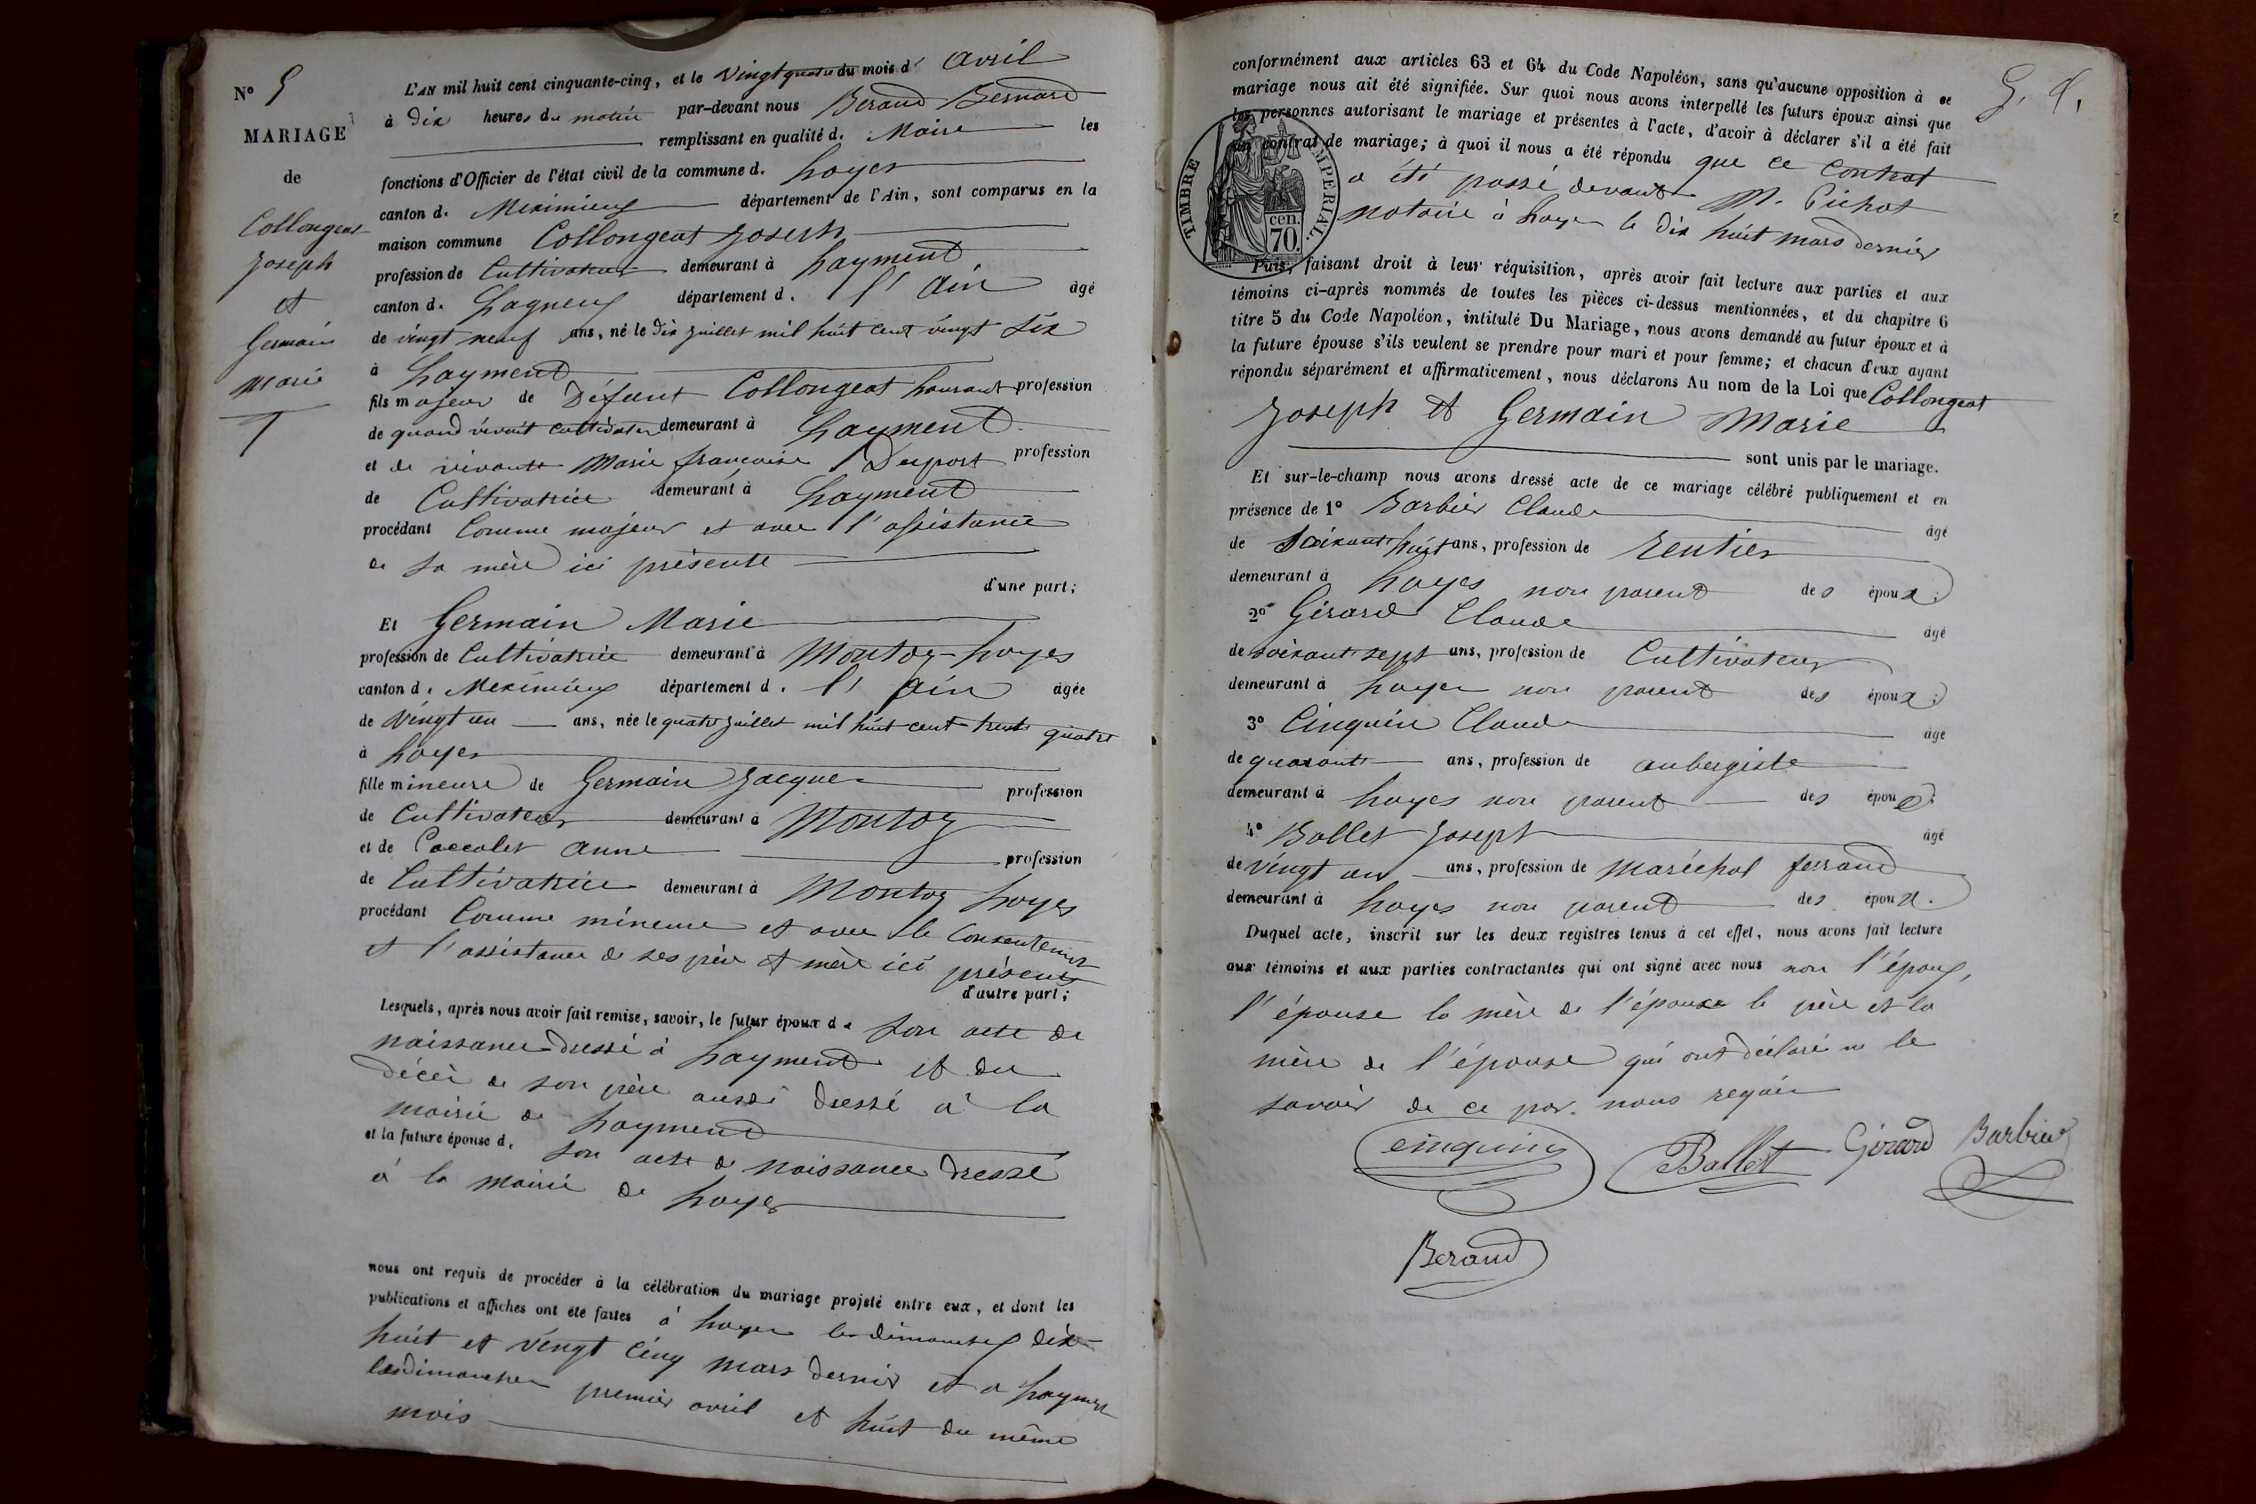 N° 5
MARIAGE
de
Collongeat
Joseph
et
Germain
Marie
L'AN mil huit cent cinquante-cinq, et le vingt quatre du mois d' avril
à dix heures du matin par-devant nous Beraud Bernard
remplissant en qualité d. Maire les
fonctions d'Officier de l'état civil de la commune d. Loyes
canton d. Meximieux département de l'Ain, sont comparus en la
maison commune Collongeat Joseph
profession de Cultivateur demeurant à Layment
canton d. Lagneux département d. l'Ain âgé
de vingt neuf ans, né le dix Juillet mil huit cent vingt six
à Layment
fils majeur de Défunt Collongeat Laurent profession
de quand vivait cultivateur demeurant à Layment
et de vivante Marie françoise Duport profession
de Cultivatrice demeurant à Layment
procédant Comme majeur et avec l'assistance
de sa mère ici présente
d'une part;
Et Germain Marie
profession de Cultivatrice demeurant à Montoz-Loyes
canton d. Meximieux département d. l'Ain âgée
de vingt un ans, née le quatre Juillet mil huit cent trente quatre
à Loyes
fille mineure de Germain Jacques profession
de Cultivateur demeurant à Montoz
et de Caccalet Anne profession
de Cultivatrice demeurant à Montoz Loyes
procédant Comme mineure et avec le Consentement
et l'assistance de ses père et mère ici présents
d'autre part;
Lesquels, après nous avoir fait remise, savoir, le futur époux d. son acte de
naissance dressé à Layment et du
décès de son père aussi dressé à la
mairie de Layment
et la future épouse d. son acte de naissance dressé
à la mairie de Loyes
nous ont requis de procéder à la célébration du mariage projeté entre eux, et dont les
publications et affiches ont été faites à Loyes les dimanches dix
huit et vingt cinq mars dernier et a Layment
les dimanches premier avril et huit du même
mois
conformément aux articles 63 et 64 du Code Napoléon, sans qu'aucune opposition à ce
mariage nous ait été signifiée. Sur quoi nous avons interpellé les futurs époux ainsi que
les personnes autorisant le mariage et présentes à l'acte, d'avoir à déclarer s'il a été fait
un contrat de mariage; à quoi il nous a été répondu que ce Contrat
a été passé devant M. Pichat
notaire à Loyes le dix huit mars dernier
TIMBRE IMPERIAL.
70 cen.
Puis, faisant droit à leur réquisition, après avoir fait lecture aux parties et aux
témoins ci-après nommés de toutes les pièces ci-dessus mentionnées, et du chapitre 6
titre 5 du Code Napoléon, intitulé Du Mariage, nous avons demandé au futur époux et à
la future épouse s'ils veulent se prendre pour mari et pour femme; et chacun d'eux ayant
répondu séparément et affirmativement, nous déclarons Au nom de la Loi que Collongeat
Joseph et Germain Marie
sont unis par le mariage.
Et sur-le-champ nous avons dressé acte de ce mariage célébré publiquement et en
présence de 1° Barbier Claude âgé
de Soixante huit ans, profession de rentier
demeurant à Loyes non parent des époux;
2° Girard Claude âgé
de soixante sept ans, profession de Cultivateur
demeurant à Loyes non parent des époux;
3° Cinquin Claude âgé
de quarante ans, profession de aubergiste
demeurant à Loyes non parent des époux;
4° Ballet Joseph âgé
de vingt un ans, profession de maréchal ferrand
demeurant à Loyes non parent des époux.
Duquel acte, inscrit sur les deux registres tenus à cet effet, nous avons fait lecture
aux témoins et aux parties contractantes qui ont signé avec nous non l'époux,
l'épouse la mère de l'époux le père et la
mère de l'épouse qui ont déclaré ne le
savoir de ce par nous requis
cinquin Ballet Girard Barbier
Beraud